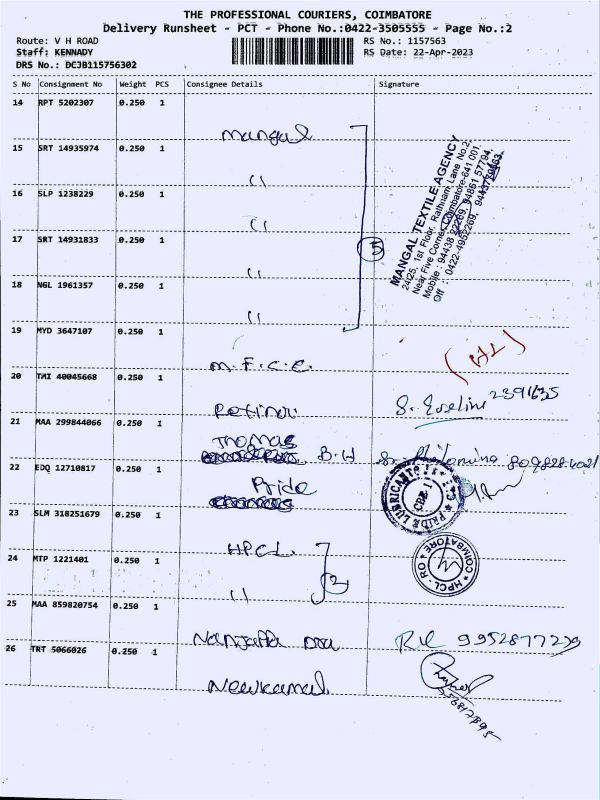 THE PROFESSIONAL COURIERS, COIMBATORE
Delivery Runsheet - PCT - Phone No.:0422-3505555 - Page No.:2
Route: V H ROAD
RS No.: 1157563
Staff: KENNADY
RS Date: 22-Apr-2023
DRS No.: DCJB115756302
S No Consignment No Weight PCS Consignee Details Signature
14 RPT 5202307 0.250 1
Mangal
15 SRT 14935974 0.250 1
"
16 SLP 1238229 0.250 1
"
17 SRT 14931833 0.250 1
"
18 NGL 1961357 0.250 1
"
5
MANGAL TEXTILE AGENCY
24/25, 1st Floor, Rathinam Lane No.2,
Near Five Corner, Coimbatore-641 001.
Mobile : 94438 22269, 94861 57794,
Off : 0422-4952269,
19 MYD 3647107 0.250 1
M.F.C.E.
20 TMI 40045668 0.250 1
Retina
2391635
21 MAA 299844066 0.250 1
Thomas
B.H
22 EDQ 12710817 0.250 1
Pride
PRIDE LUBRICANTS
CBE-1
23 SLM 318251679 0.250 1
HPCL
24 MTP 1221401 0.250 1
"
2
HPCL - RO
COIMBATORE
25 MAA 859820754 0.250 1
9952877279
26 TRT 5066026 0.250 1
Newkamal